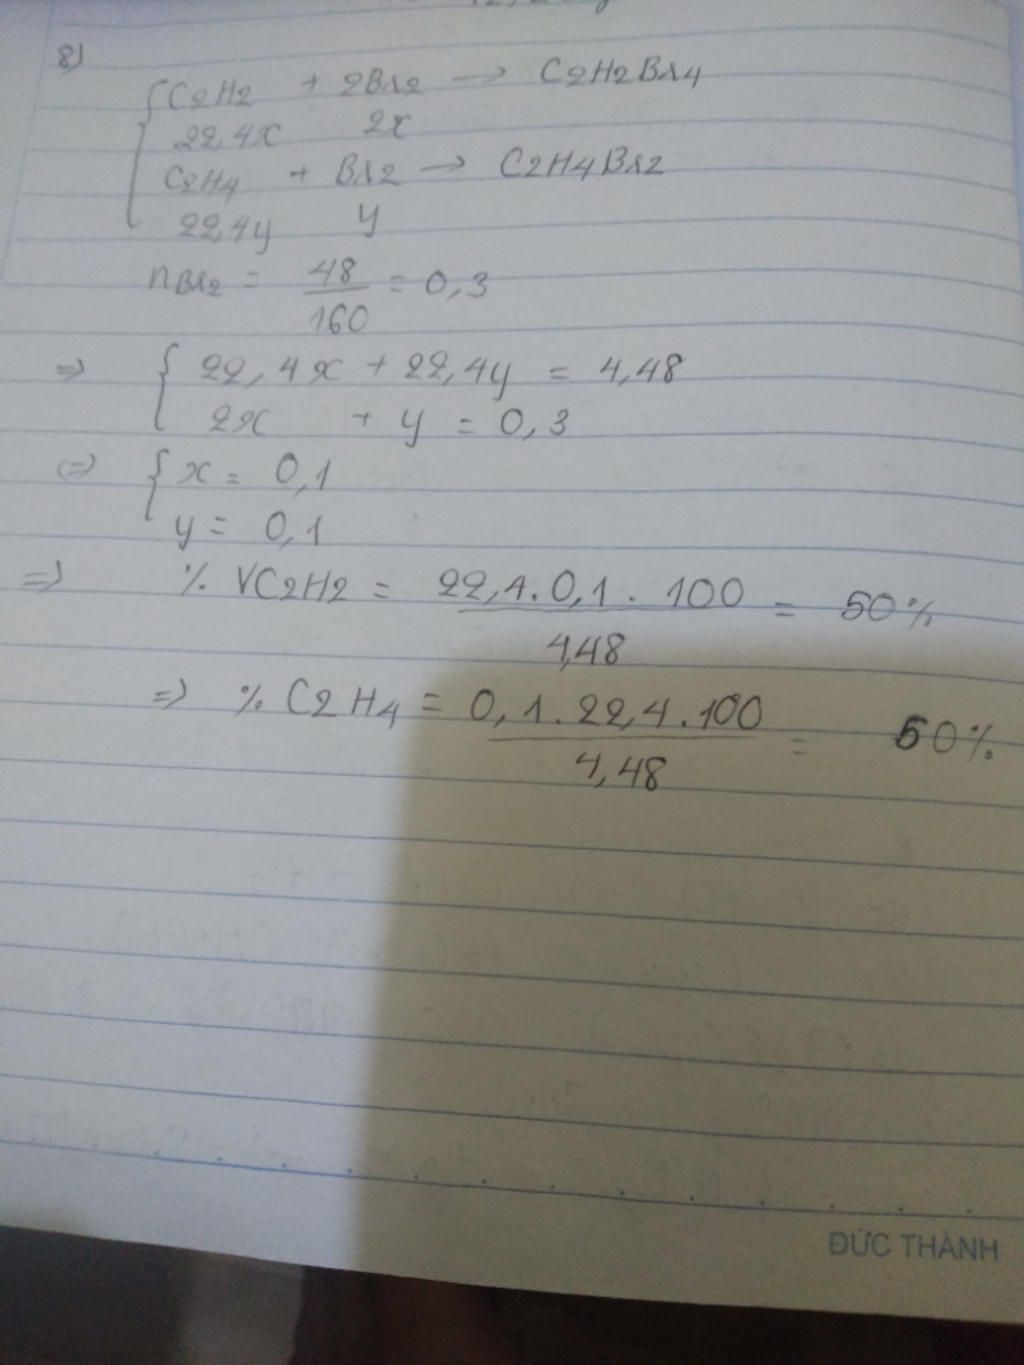 8)
C2H2 + 2Br2 → C2H2Br4
22,4x 2x
C2H4 + Br2 → C2H4Br2
22,4y y
nBr2 = 48/160 = 0,3
=> { 22,4x + 22,4y = 4,48
2x + y = 0,3
<=> { x = 0,1
y = 0,1
=> % VC2H2 = 22,4.0,1.100/4,48 = 50%
=> % C2H4 = 0,1.22,4.100/4,48 = 50%
ĐỨC THÀNH